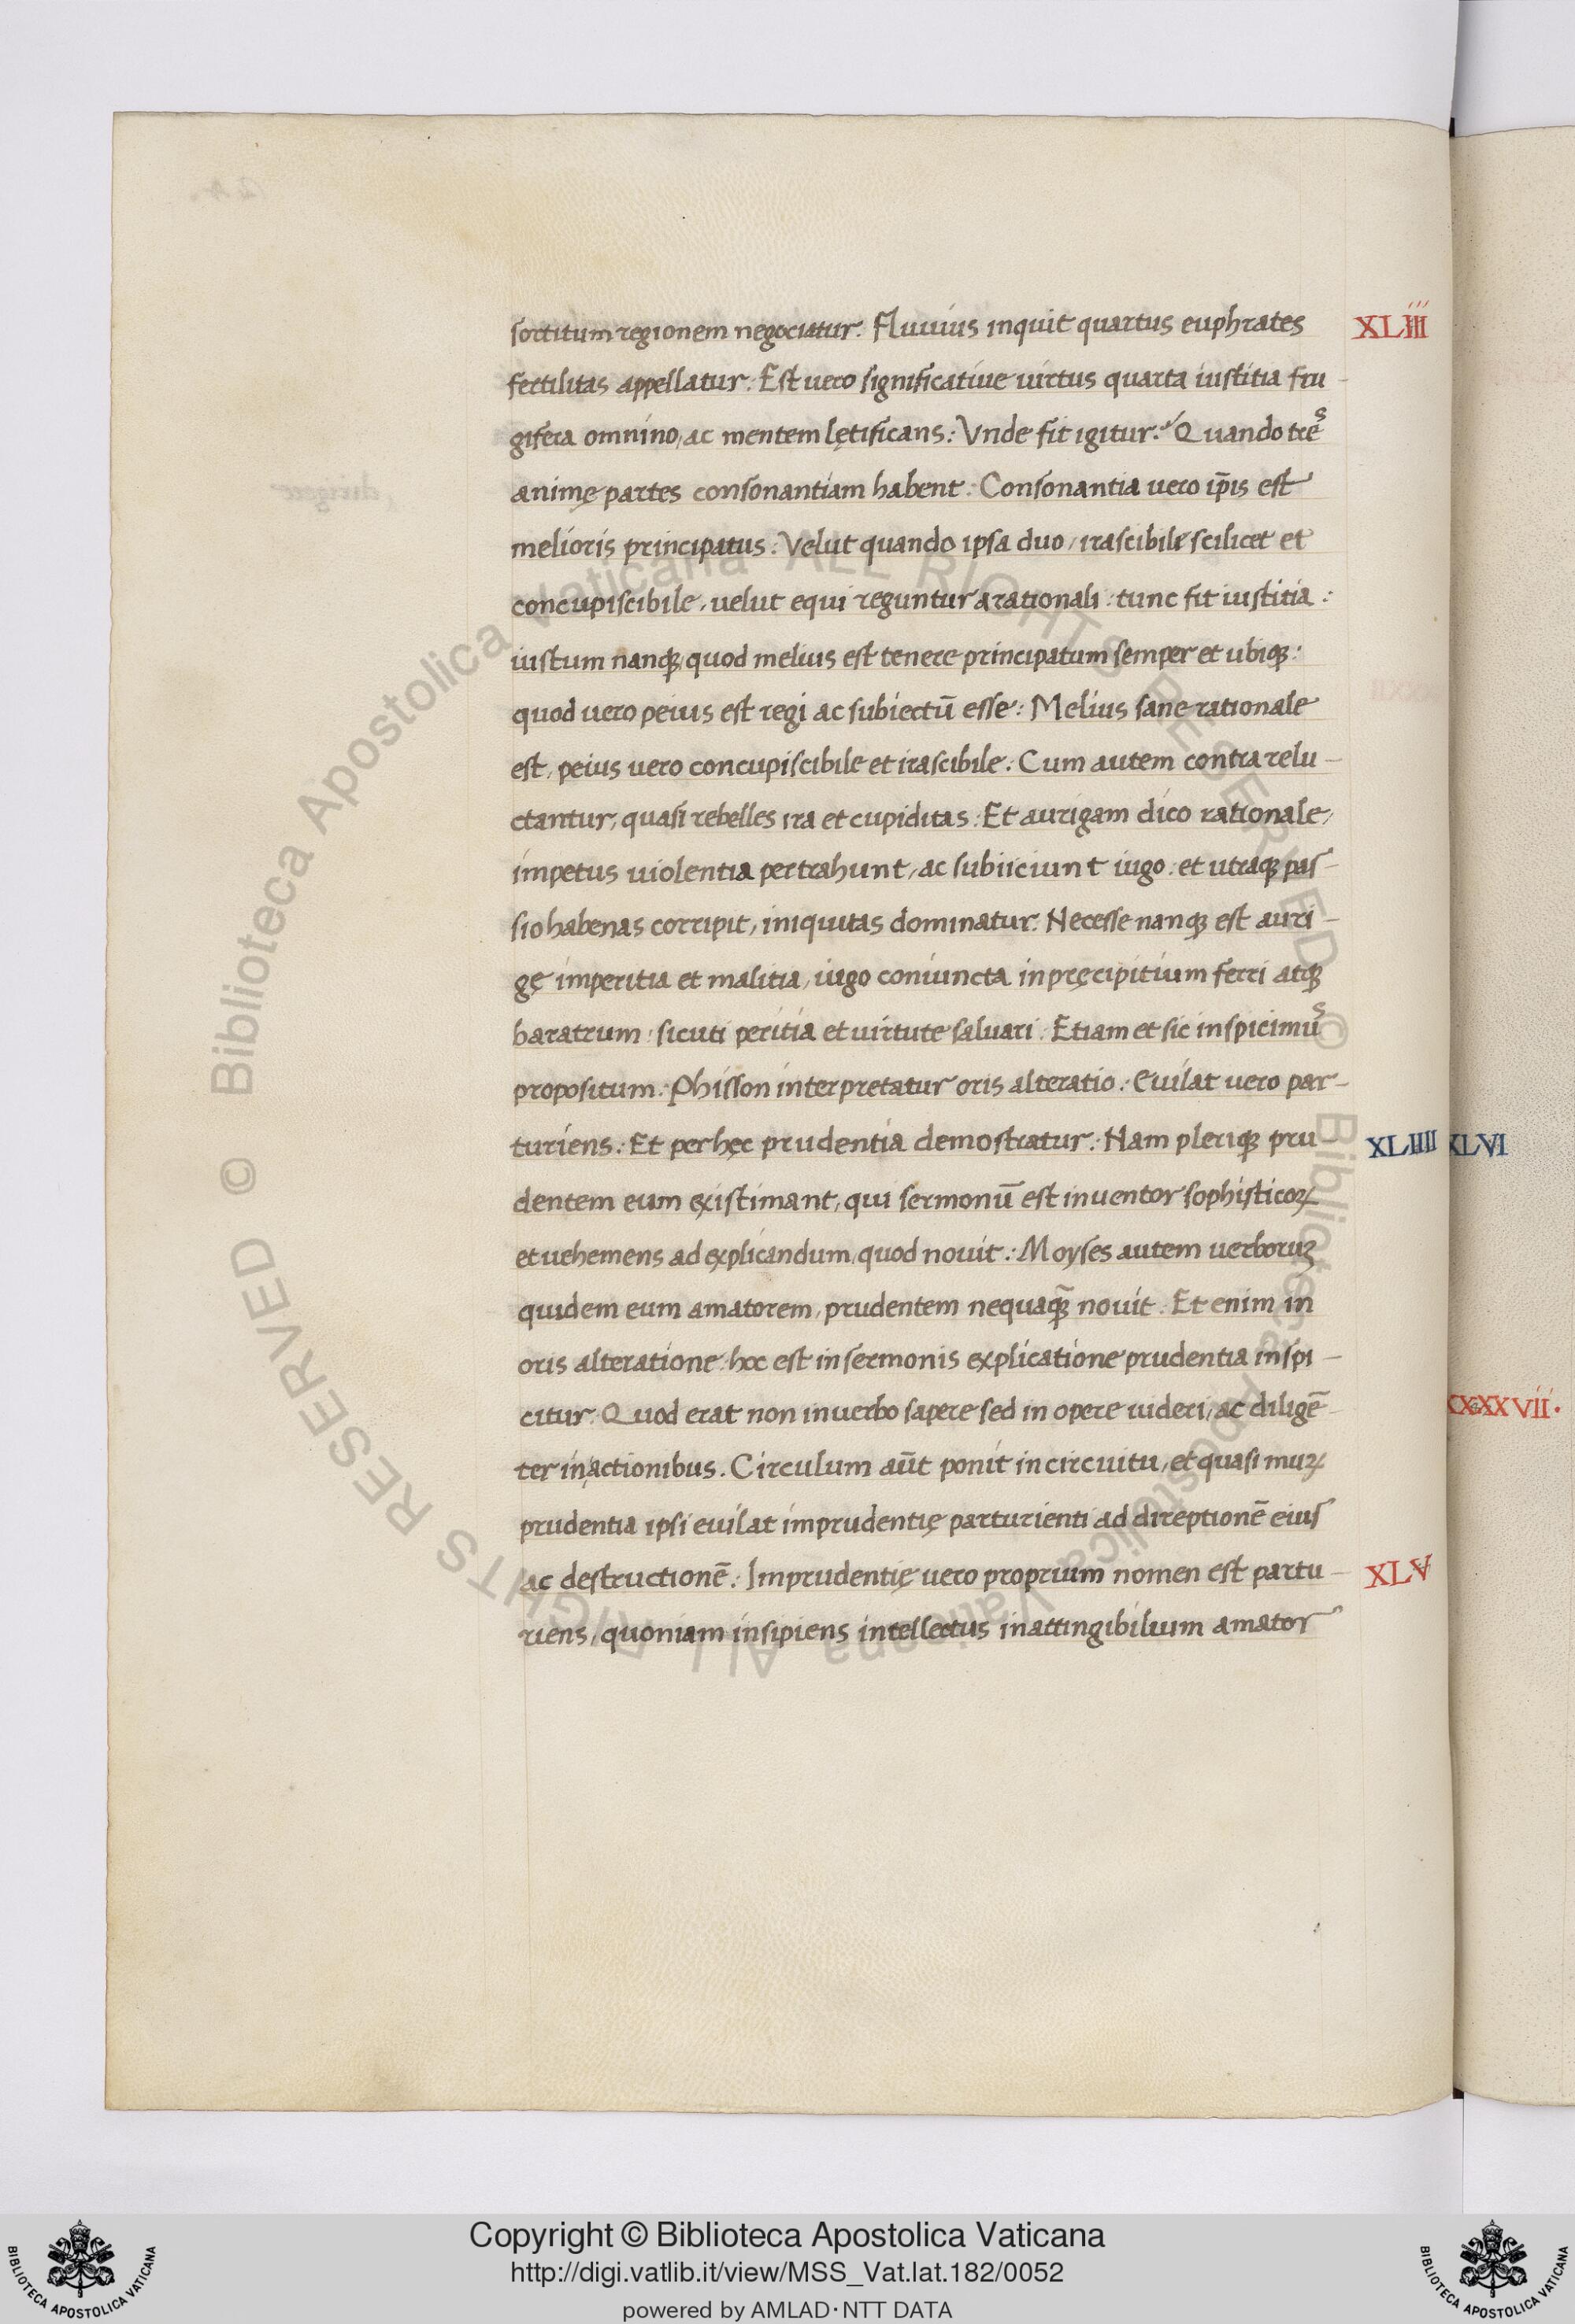 sortitum regionem negociatur. Fluuius inquit quartus euphrates XLIII
fertilitas appellatur: Est uero significatiue uirtus quarta iustitia fru-
gifera omnino, ac mentem lętificans: Vnde fit igitur: Quando tres
animę partes consonantiam habent: Consonantia uero ip̄is est
melioris principatus: Velut quando ipsa duo, irascibile scilicet et
concupiscibile, uelut equi reguntur a rationali: tunc fit iustitia:
iustum nanqꝫ, quod melius est tenere principatum semper et ubiqꝫ:
quod uero peius est regi ac subiectū esse: Melius sane rationale
est, peius uero concupiscibile et irascibile: Cum autem contra relu-
ctantur, quasi rebelles ira et cupiditas: Et aurigam dico rationale,
impetus uiolentia pertrahunt, ac subiiciunt iugo: et utraqꝫ pas-
sio habenas corripit, iniquitas dominatur: Necesse nanqꝫ est auri-
gę imperitia et malitia, iugo coniuncta in pręcipitium ferri atqꝫ
baratrum: sicuti peritia et uirtute saluari: Etiam et sic inspicimus
propositum: Phisson interpretatur oris alteratio: Euilat uero par-
turiens: Et per hęc prudentia demostratur: Nam pleriqꝫ pru- XLIIII XLVI
dentem eum existimant, qui sermonū est inuentor sophisticoꝝ
et uehemens ad explicandum, quod nouit: Moyses autem uerboruꝫ
quidem eum amatorem, prudentem nequaqꝫ̄ nouit: Et enim in
oris alteratione: hoc est in sermonis explicatione prudentia inspi-
citur: Quod erat non in uerbo sapere sed in opere uideri, ac diligē- XXXXVII.
ter in actionibus. Circulum aūt ponit in circuitu, et quasi muꝝ
prudentia ipsi euilat imprudentię parturienti ad direptionē eius
ac destructionē: Imprudentię uero proprium nomen est partu- XLV
riens, quoniam insipiens intellectus inattingibilium amator
© Biblioteca Apostolica Vaticana ALL RIGHTS RESERVED © Biblioteca Apostolica Vaticana ALL RIGHTS RESERVED
Copyright © Biblioteca Apostolica Vaticana
http://digi.vatlib.it/view/MSS_Vat.lat.182/0052
powered by AMLAD·NTT DATA
BIBLIOTECA APOSTOLICA VATICANA
BIBLIOTECA APOSTOLICA VATICANA